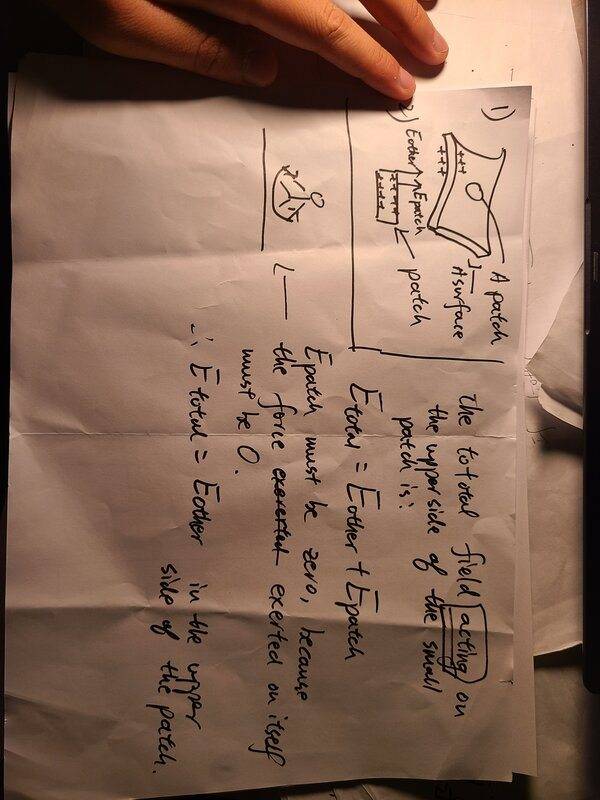 1)
+++
+++
A patch
A surface
2)
Eother Epatch
++++
++++
patch
The tototal field acting on
the upper side of the small
patch is:
Etotal = Eother + Epatch
Epatch must be zero, because
the force exerted on itself
must be 0.
∴ Etotal = Eother in the upper
side of the patch.